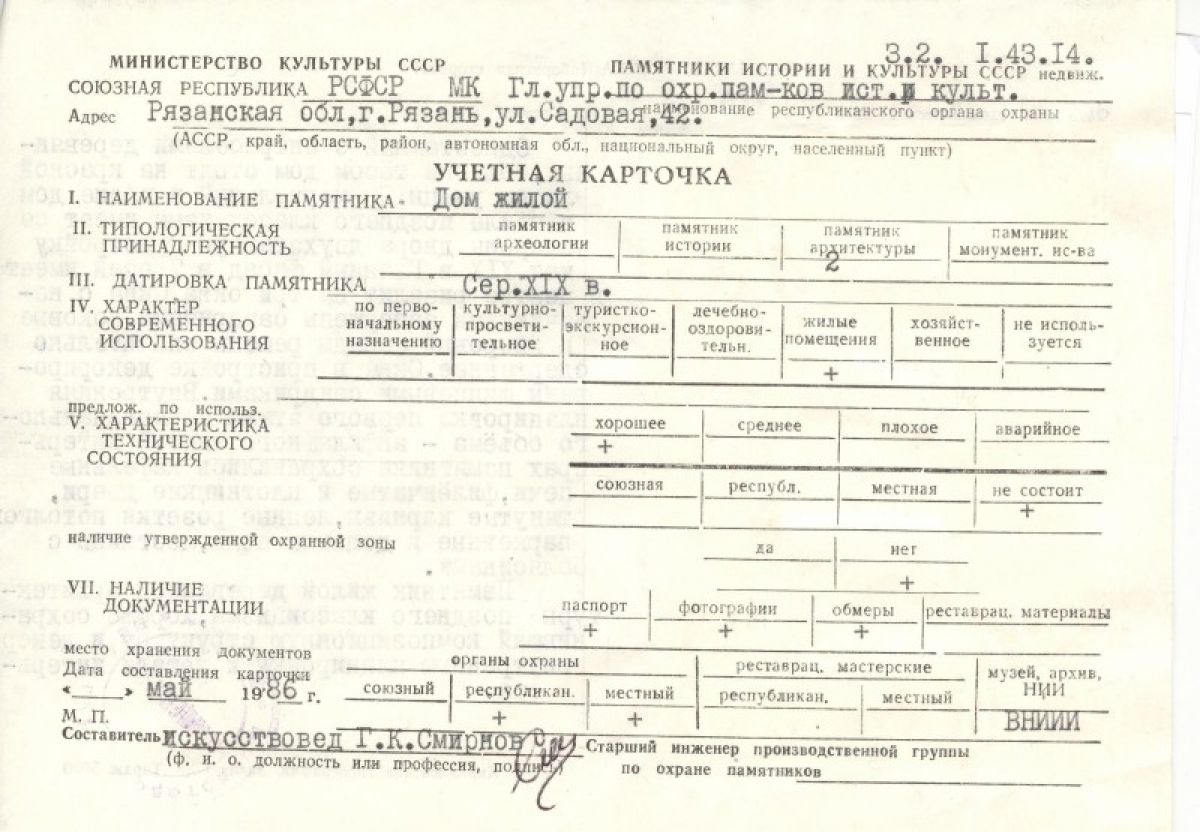 3.2. I.43.I4.
МИНИСТЕРСТВО КУЛЬТУРЫ СССР ПАМЯТНИКИ ИСТОРИИ И КУЛЬТУРЫ СССР недвиж.
СОЮЗНАЯ РЕСПУБЛИКА РСФСР МК Гл.упр.по охр.пам-ков ист.и культ.
наименование республиканского органа охраны
Адрес Рязанская обл,г.Рязань,ул.Садовая,42.
(АССР, край, область, район, автономная обл., национальный округ, населенный пункт)
УЧЕТНАЯ КАРТОЧКА
I. НАИМЕНОВАНИЕ ПАМЯТНИКА Дом жилой
II. ТИПОЛОГИЧЕСКАЯ ПРИНАДЛЕЖНОСТЬ
памятник археологии памятник истории памятник архитектуры памятник монумент. ис-ва
2
III. ДАТИРОВКА ПАМЯТНИКА Сер.XIX в.
IV. ХАРАКТЕР СОВРЕМЕННОГО ИСПОЛЬЗОВАНИЯ
по перво- культурно- туристко- лечебно- жилые хозяйст- не исполь-
начальному просвети- экскурсион- оздорови- помещения венное зуется
назначению тельное ное тельн.
+
предлож. по использ.
V. ХАРАКТЕРИСТИКА ТЕХНИЧЕСКОГО СОСТОЯНИЯ
хорошее среднее плохое аварийное
+
союзная республ. местная не состоит
+
наличие утвержденной охранной зоны
да нет
+
VII. НАЛИЧИЕ ДОКУМЕНТАЦИИ
паспорт фотографии обмеры реставрац. материалы
+ + +
место хранения документов органы охраны реставрац. мастерские музей, архив, НИИ
Дата составления карточки
« » май 1986 г. союзный республикан. местный республикан. местный
М. П. + + ВНИИИ
Составитель искусствовед Г.К.Смирнов Старший инженер производственной группы
(ф. и. о, должность или профессия, подпись) по охране памятников